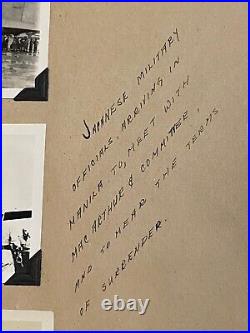 JAPANESE MILITARY
OFFICIALS ARRIVING IN
MANILA TO, MEET WITH
MAC ARTHUR & COMMITTEE,
AND TO HEAR THE TERMS
OF SURRENDER.